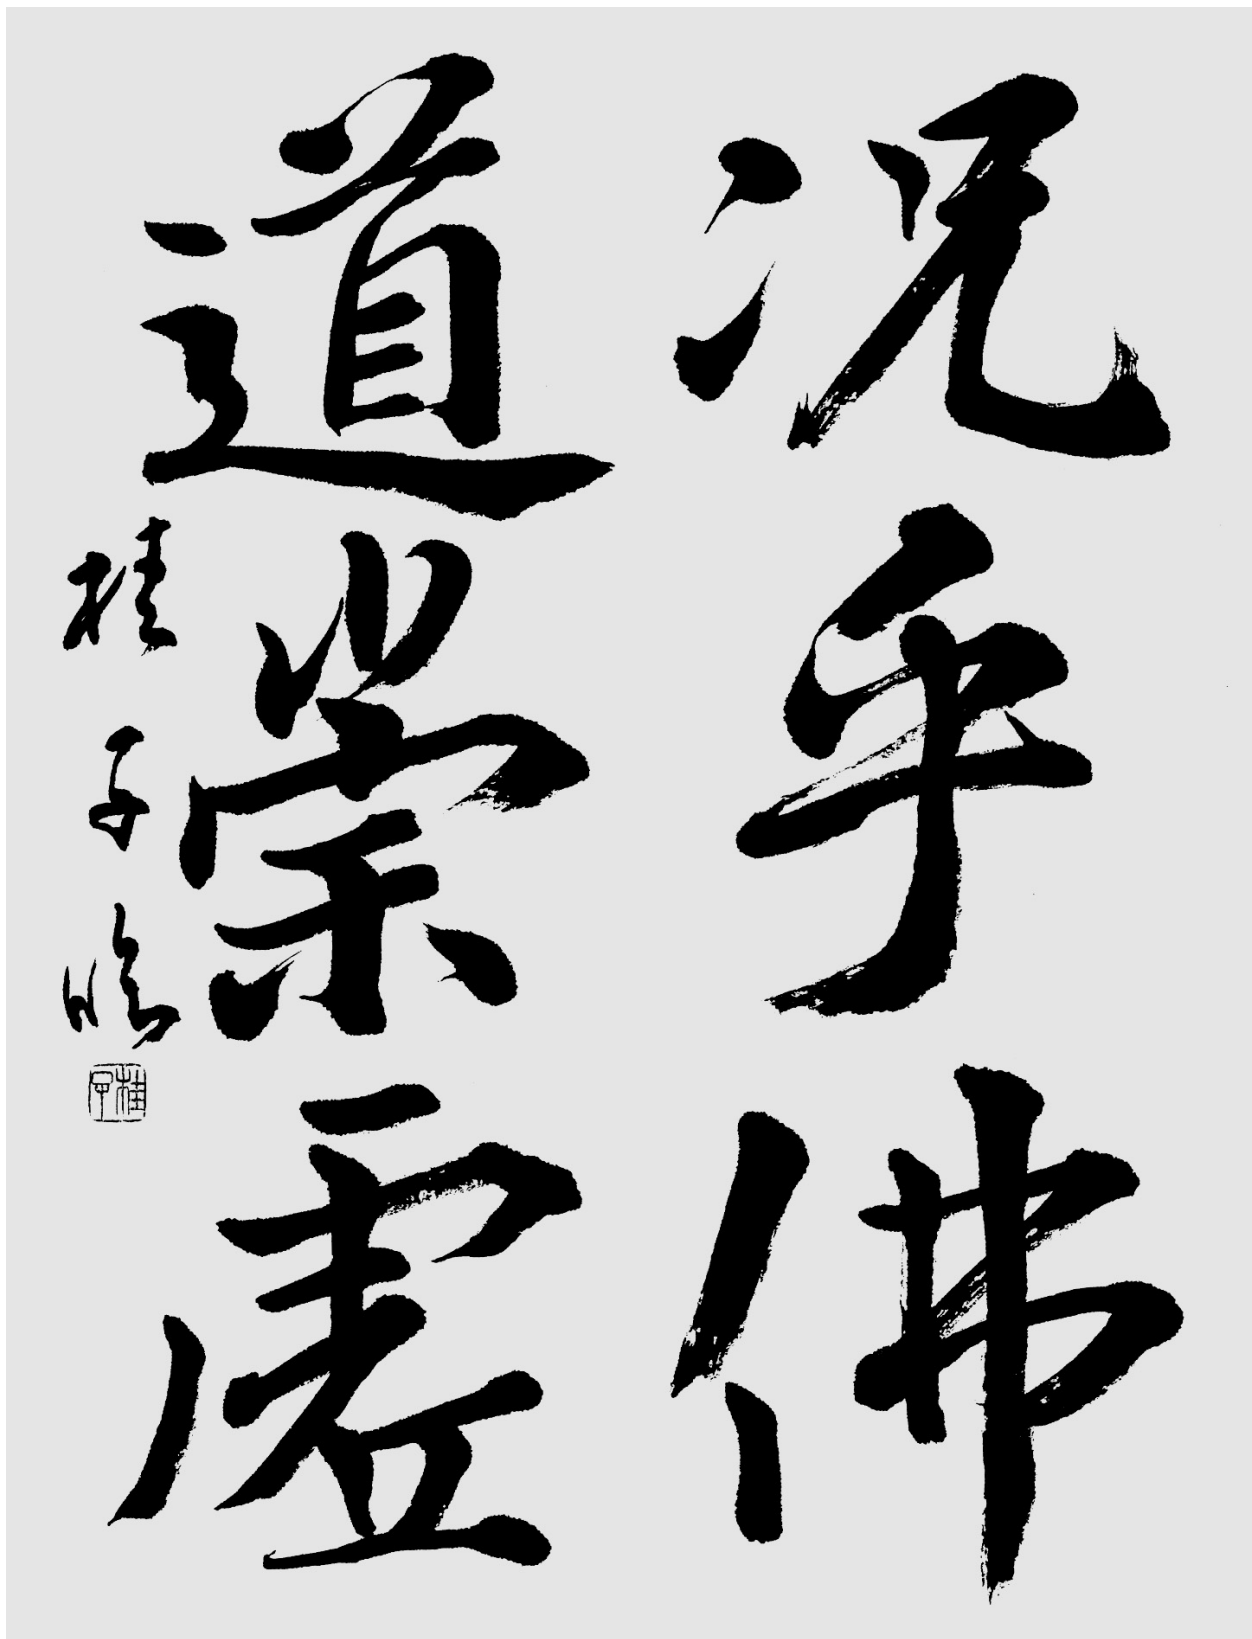 况乎佛
道崇虚
桂子临
桂子